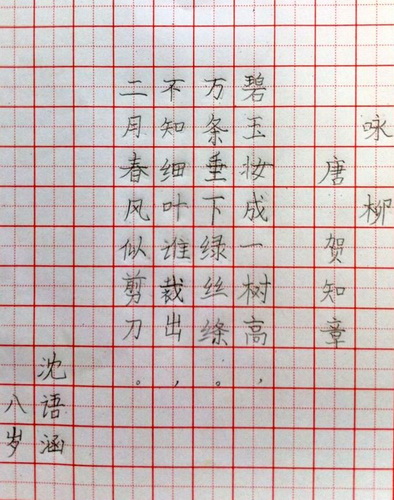 咏柳
唐贺知章
碧玉妆成一树高，
万条垂下绿丝绦。
不知细叶谁裁出，
二月春风似剪刀。
沈语涵
八岁